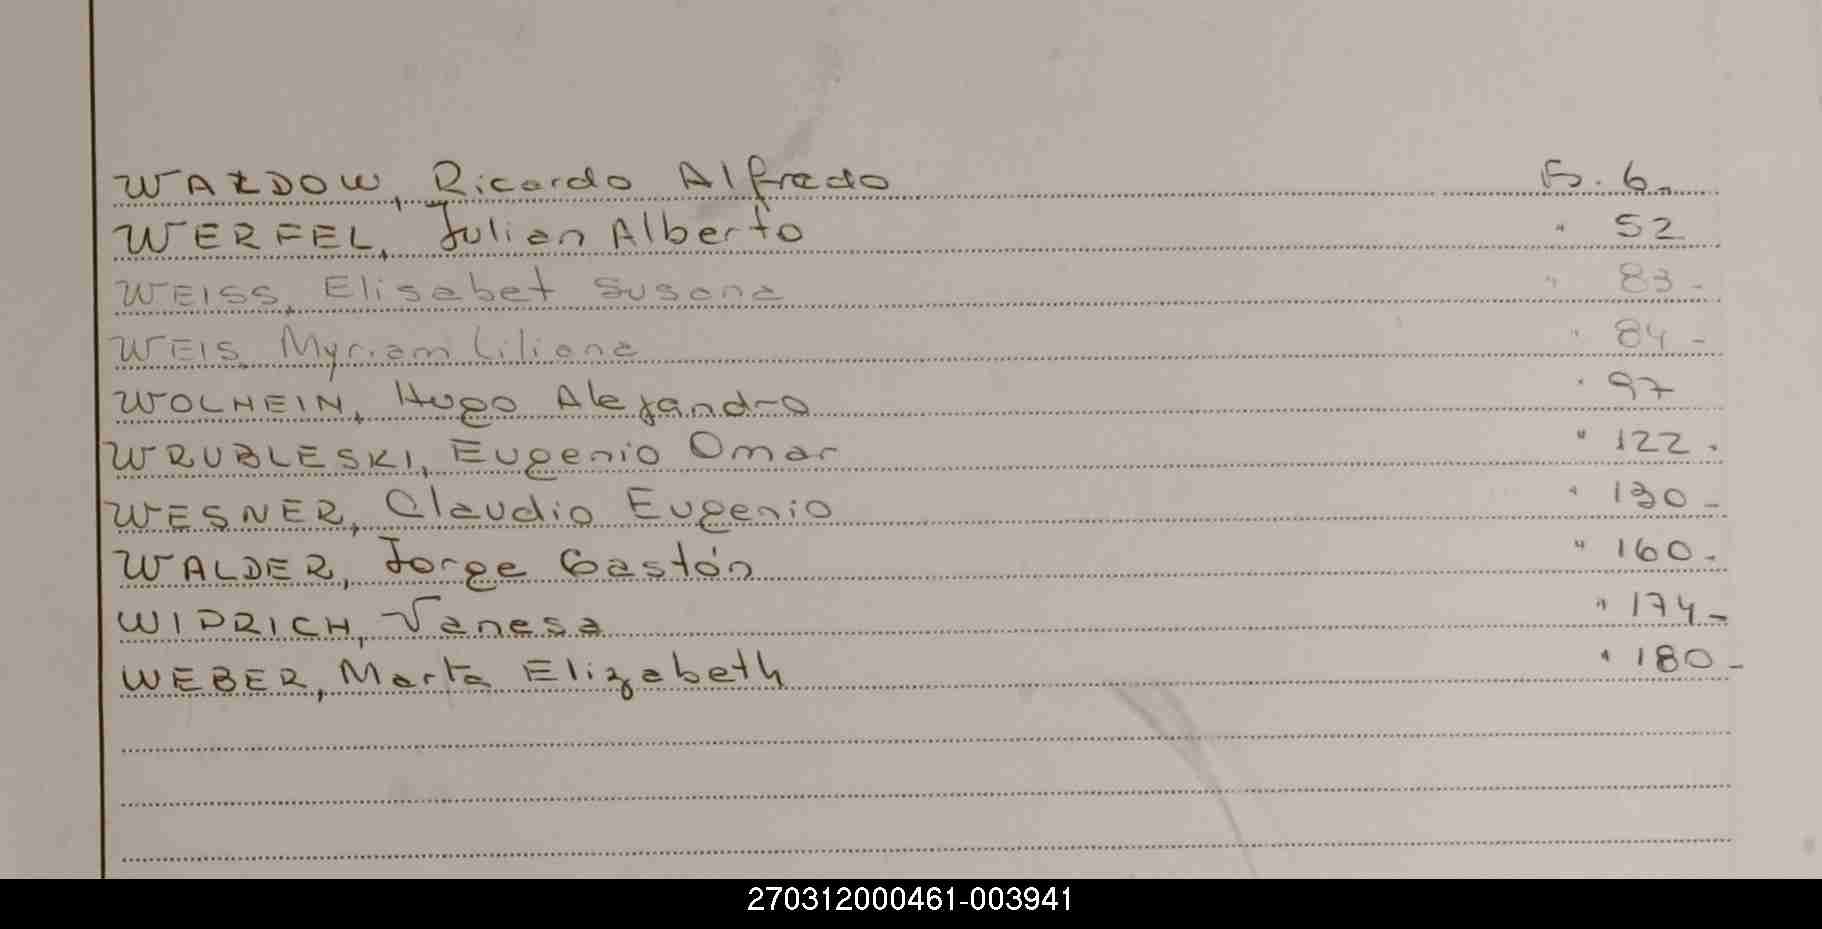 WALDOW, Ricardo Alfredo Fs. 6.
WERFEL, Julian Alberto " 52
WEISS, Elisabet Susana " 83-
WEIS, Myriam Liliana " 84-
WOLHEIN, Hugo Alejandro " 97
WRUBLESKI, Eugenio Omar " 122.
WESNER, Claudio Eugenio " 130-
WALDER, Jorge Gastón " 160.
WIDRICH, Vanesa " 174-
WEBER, Marta Elizabeth " 180-
270312000461-003941